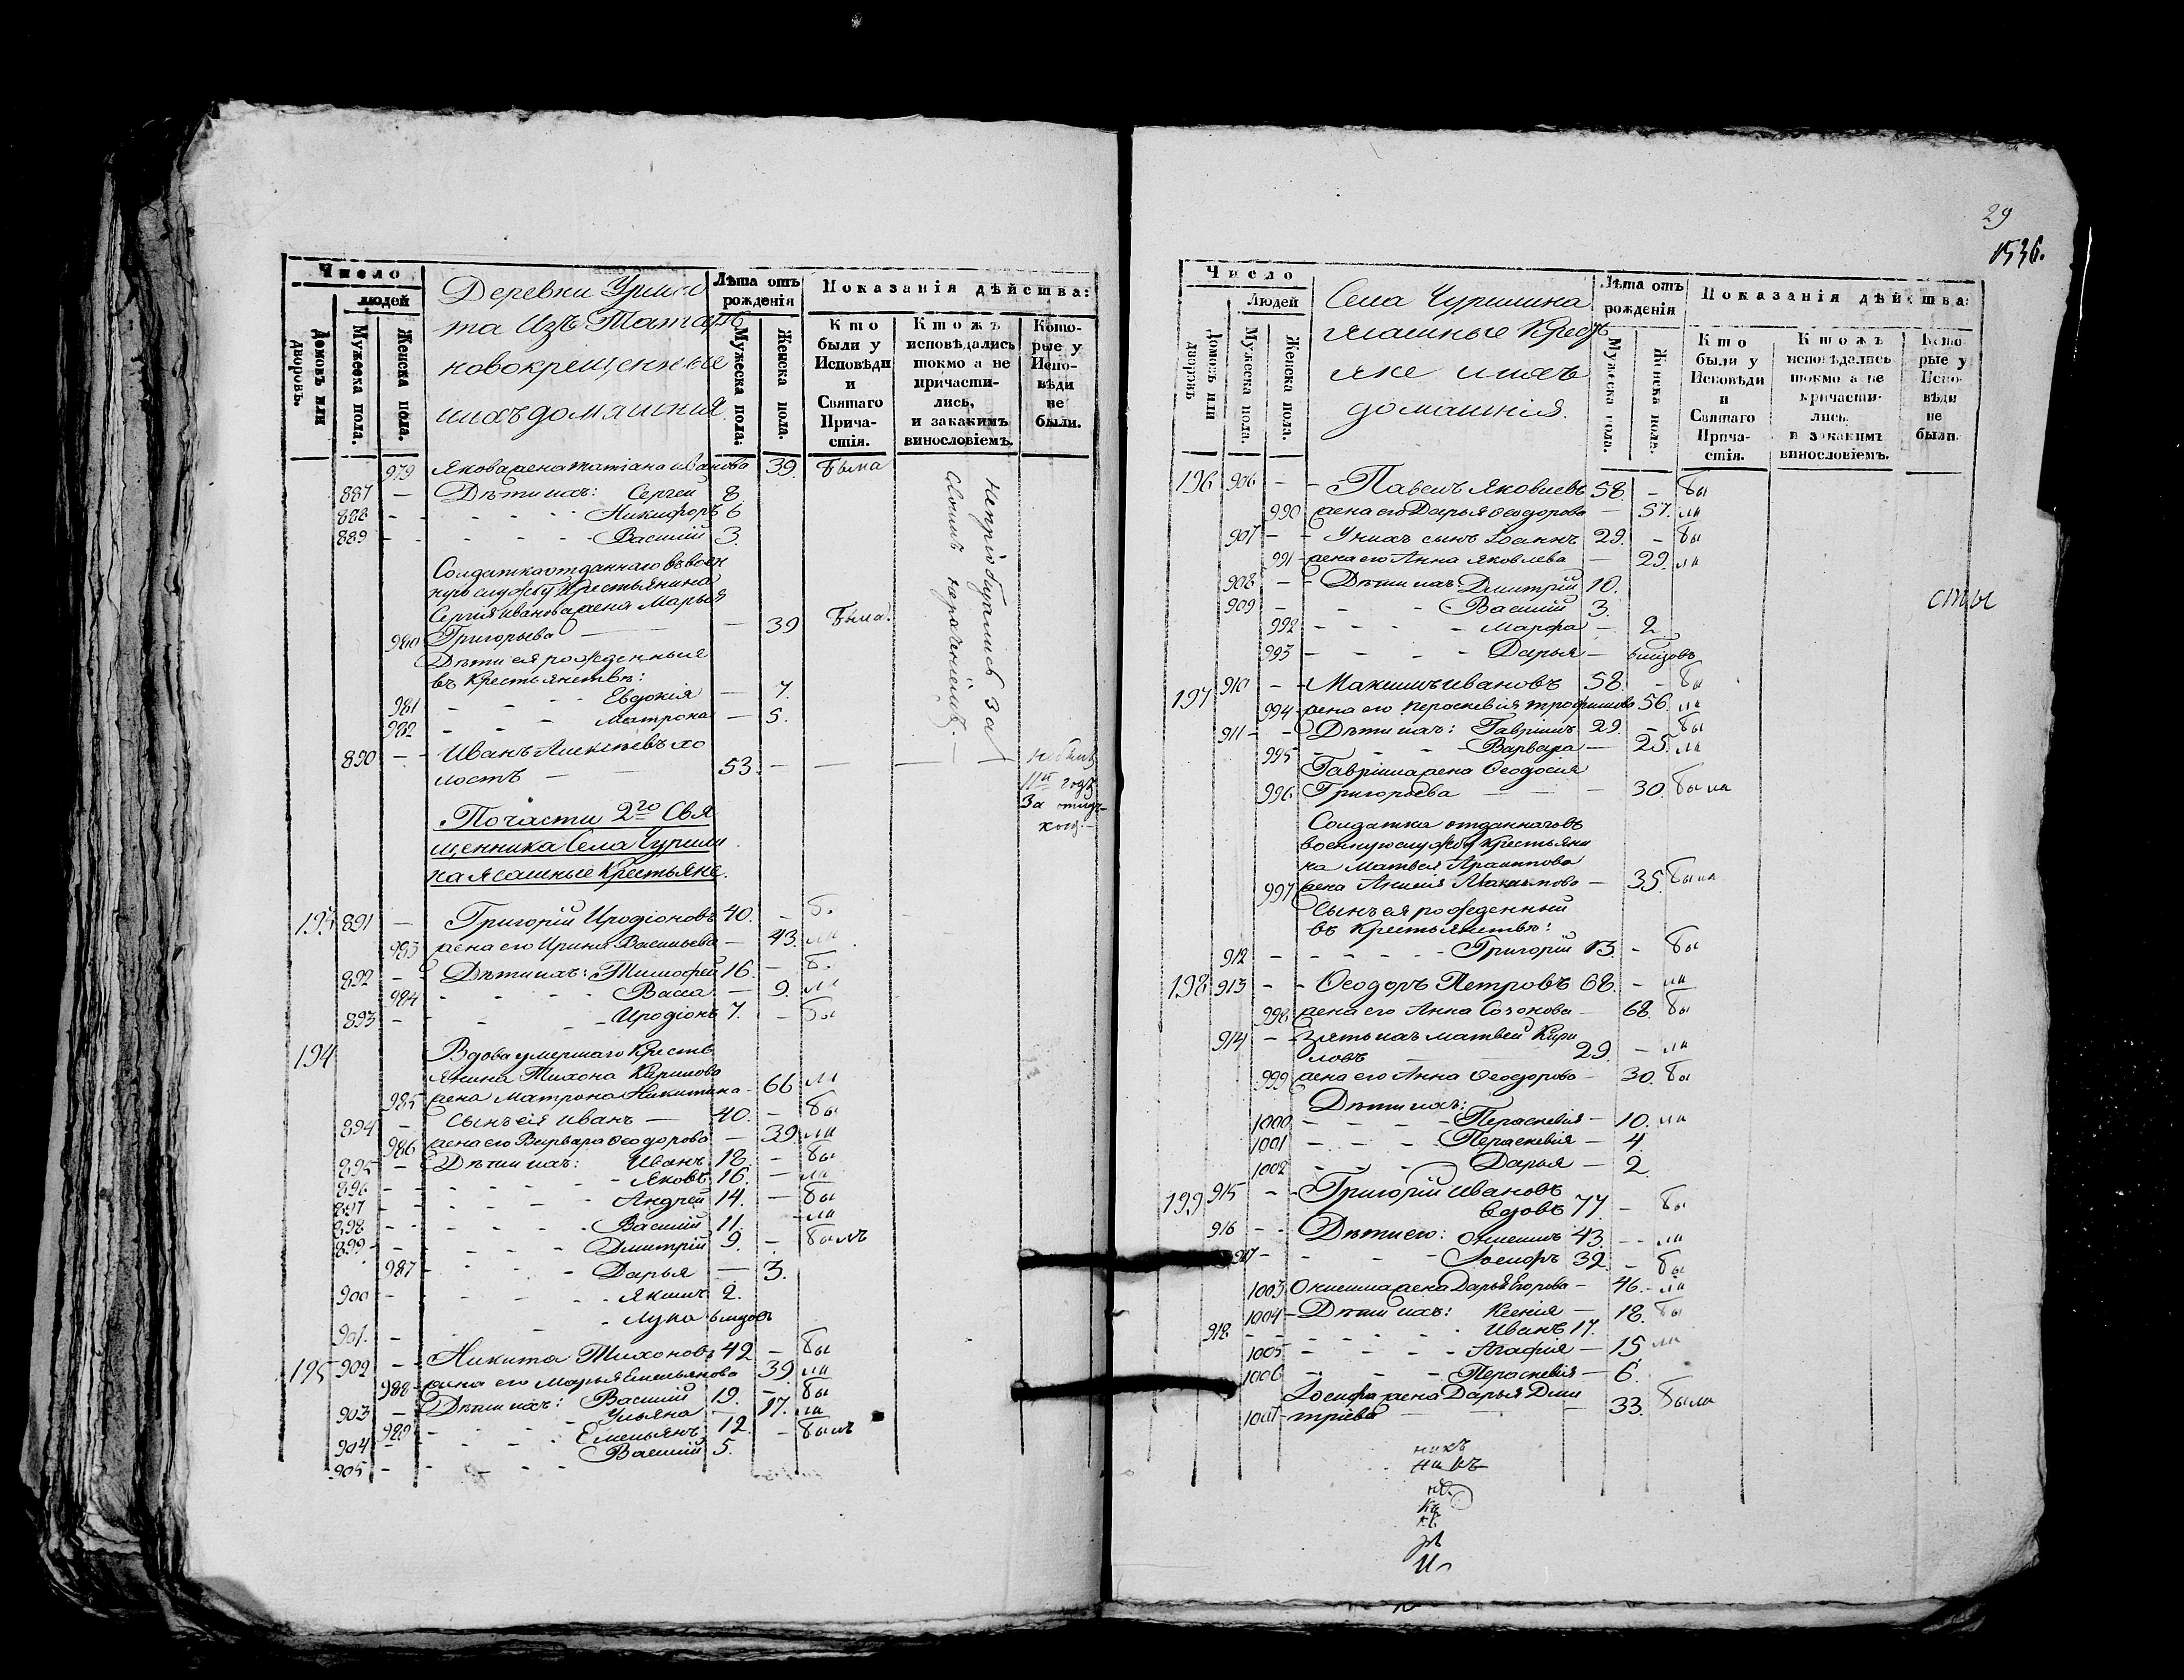 Число
людей
Домовъ или дворовъ.
Мужеска пола.
Женска пола.
Деревни Урмо
та изъ Татаръ
новокрещенные
ихъ домашнія
Лѣта отъ рожденія
Мужеска пола.
Женска пола.
Показанія дѣйства:
Кто были у Исповѣди и Святаго Причастія.
Ктожъ исповѣдались токмо а не причастились, и закакимъ винословіемъ.
Которые у Исповѣди не были.
979 Якова жена татіана иванова 39. была
887 — Дѣти ихъ: Сергей 8.
888 - - Никифоръ 6
889 - - Василій 3.
Солдатка отданнаго въ воен
ную службу Крестьянина
Сергія иванова жена Марья
980 Григорьева — 39 была.
Дѣти ея рожденныя
въ крестьянствѣ:
981 - - Евдокія — 7.
982 - - матрона — 5.
890 - - Иванъ Алексѣевъ хо
лостъ — 53. — —
непріобщались за
своимъ
небылъ
Почасти 2го Свя
щенника Села Чурили
на ясашные Крестьяне.
193 891 — Григорій Иродіоновъ 40. — б.
983 жена его Ирина Васильева — 43. ли
892 - - Дѣти ихъ: Тимофей 16. — б.
984 - - Васса — 9. ли
893 - - Иродіонъ 7. - бы
194 Вдова умершаго Кресть
янина Тихона Кирилова
985 жена Матрона Никитина - 66 ли
894 — Сынъ ея иванъ — 40. — бы
986 жена его Варвара Ѳеодорова — 39. ли
895 — Дѣти ихъ: Иванъ 18. - бы
896 - - Яковъ 16. — ли
897 - - Андрей 14. — бы
898 - - Василій 11. - ли
899 - - Дмитрій 9. - былъ
987 - - Дарья — 3.
900 - - Якимъ 2.
901. - - Лука близовъ
195 902 - - Никита Тихоновъ 42 — бы
988 жена его Марья Емельянова 39 ли
903 — Дѣти ихъ: Василій 19. — бы
989 - - Ульяна — 17. ли
904 - - Емельянъ 12. - былъ
905 - - Василій 5.
29
1536.
Число
Людей
Домовъ или дворовъ
Мужеска пола.
Женска пола.
Села Чурилина
ясашные Кресть
яне ихъ
домашнія.
Лѣта отъ рожденія
Мужеска пола.
Женска пола.
Показанія дѣйства:
Кто были у Исповѣди и Святаго Причастія.
Ктожъ исповѣдались токмо а не причастились и закакимъ винословіемъ.
Которые у Исповѣди не были.
196 906 - - Павелъ Яковлевъ 58 - бы
990 жена его Дарья Ѳеодорова — 57. ли
907 - - Унихъ сынъ Іоаннъ 29. - бы
991 - жена его Анна Яковлева — 29. ли
908 - - Дѣти ихъ: Дмитрій 10.
909 - - Василій 3.
сты
992 - - Марфа — 2
993 - - Дарья — близовъ
197 910 - - Максимъ ивановъ 58. - бы
994 - жена его Пераскевія трофимова 56. ли
911 - - Дѣти ихъ: Гавріилъ 29. - бы
995 - - Варвара — 25. ли
Гавріила жена Ѳеодосія
996 Григорьева — 30. была
Солдатка отданнаго въ
военную службу крестьяни
на Матвея Архиппова
997 жена Максимова — 35. была
Сынъ ея рожденный
въ Крестьянствѣ:
912 - - Григорій 13. - бы
198 913 - - Ѳеодоръ Петровъ 68. - ли
998 жена его Анна Созонова - 68. бы
914 - Зять ихъ матвей Кири
ловъ 29. - ли
999 жена его Анна Ѳеодорова — 30. бы
Дѣти ихъ:
1000 - - Пераскевія — 10. ли
1001 - - Пераскевія — 4.
1002 - - Дарья — 2
199 915 - - Григорій ивановъ
вдовъ 77. - бы
916 - - Дѣти его: Онисимъ 43. - ли
917 - - Іосифъ 32. - бы
1003 Онисима жена Дарья Егорова — 46. - ли
1004 - Дѣти ихъ: Ксенія — 18. бы
918 - - Иванъ 17.
1005 - - Агафія — 15 ли
1006 - - Пераскевія — 6.
Іосифа жена Дарья Дми
1007 - тріева — 33. была